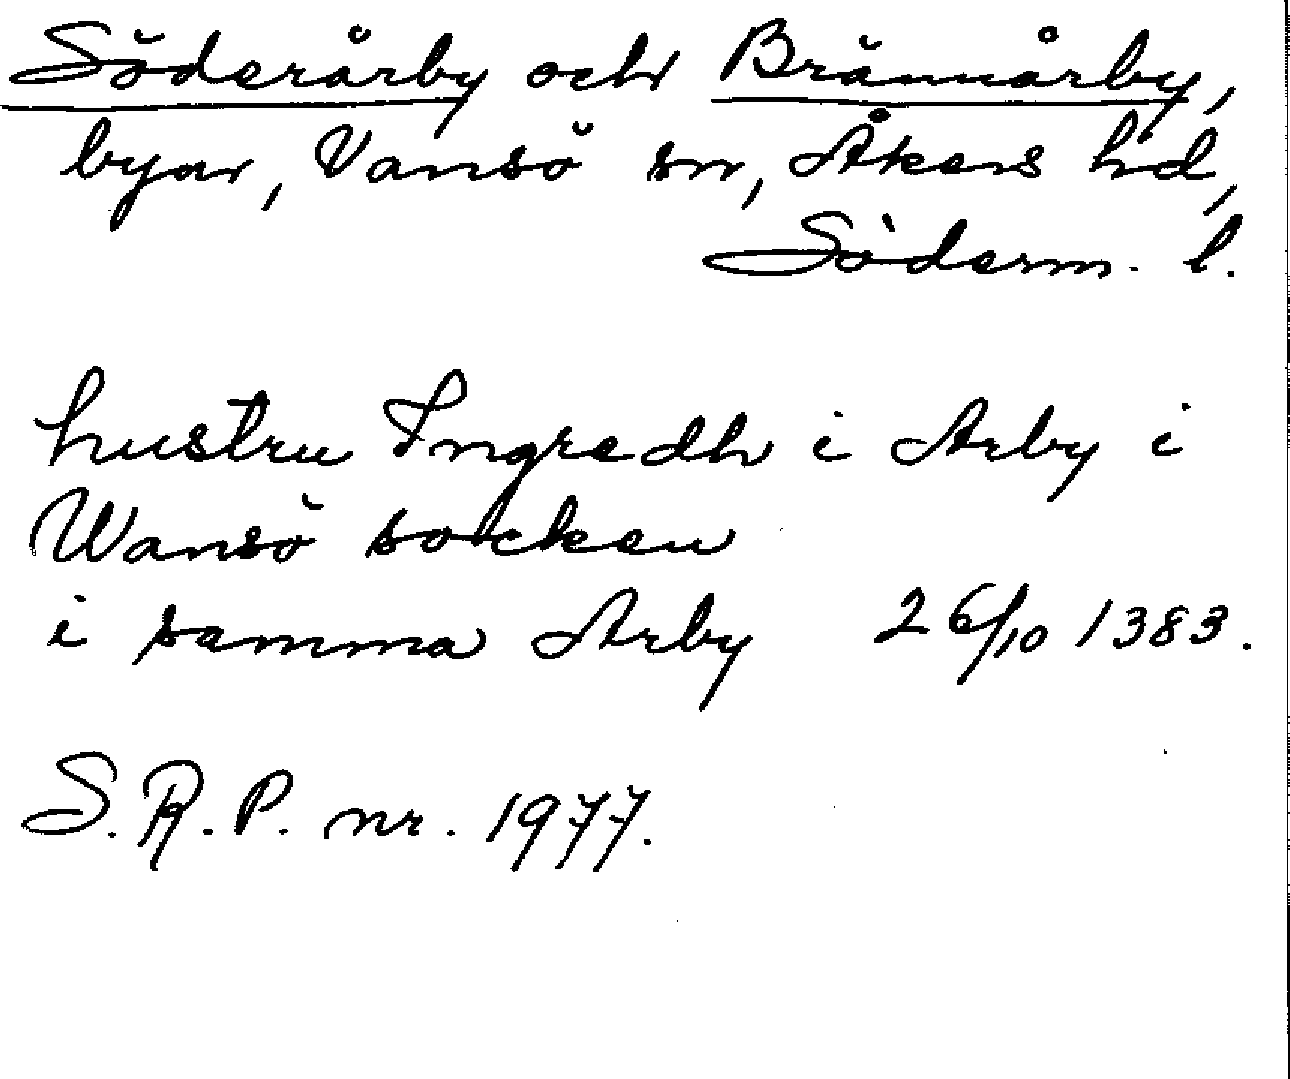 Söderårby och Brännårby,
byar, Vansö sn, Åkers hd,
Söderm. l.
hustru Ingredh i Arby i
Wansö socken
i samma Arby 26/10 1383.
S.R.P. nr. 1977.